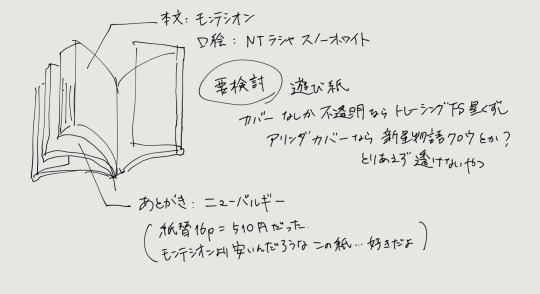 本文: モンテシオン
口絵: NTラシャ スノーホワイト
要検討 遊び紙
カバーなしか不透明なら トレーシングFS星くずし
アリンダカバーなら 新星物語 クロウとか?
とりあえず透けないやつ
あとがき: ニューバルギー
(紙替16p = 510円だった
モンテシオンより安いんだろうな この紙…好きだよ)